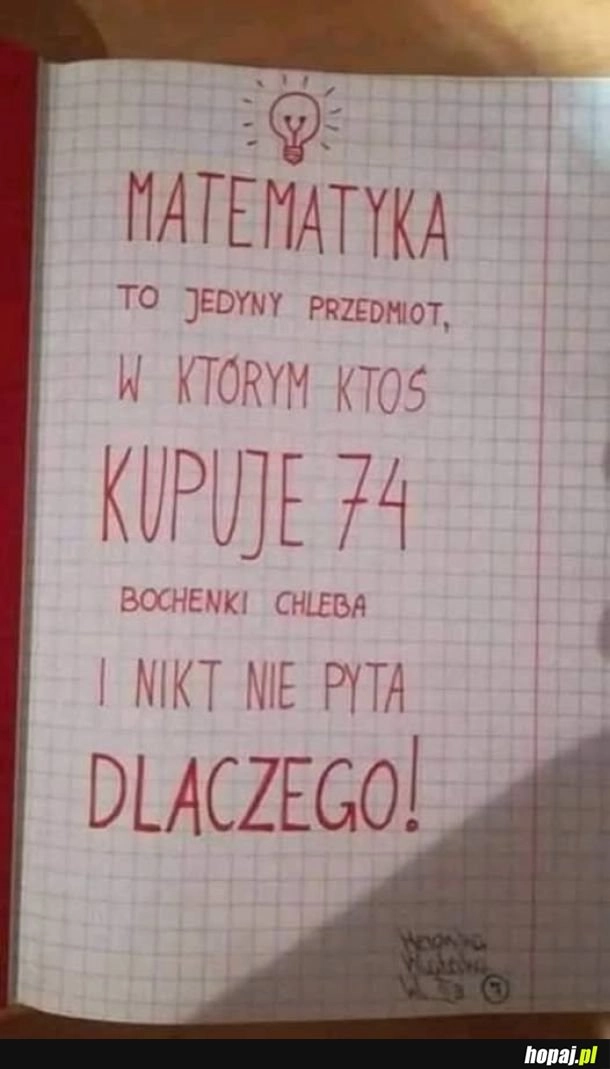 MATEMATYKA
TO JEDYNY PRZEDMIOT,
W KTÓRYM KTOŚ
KUPUJE 74
BOCHENKI CHLEBA
I NIKT NIE PYTA
DLACZEGO!
hopaj.pl